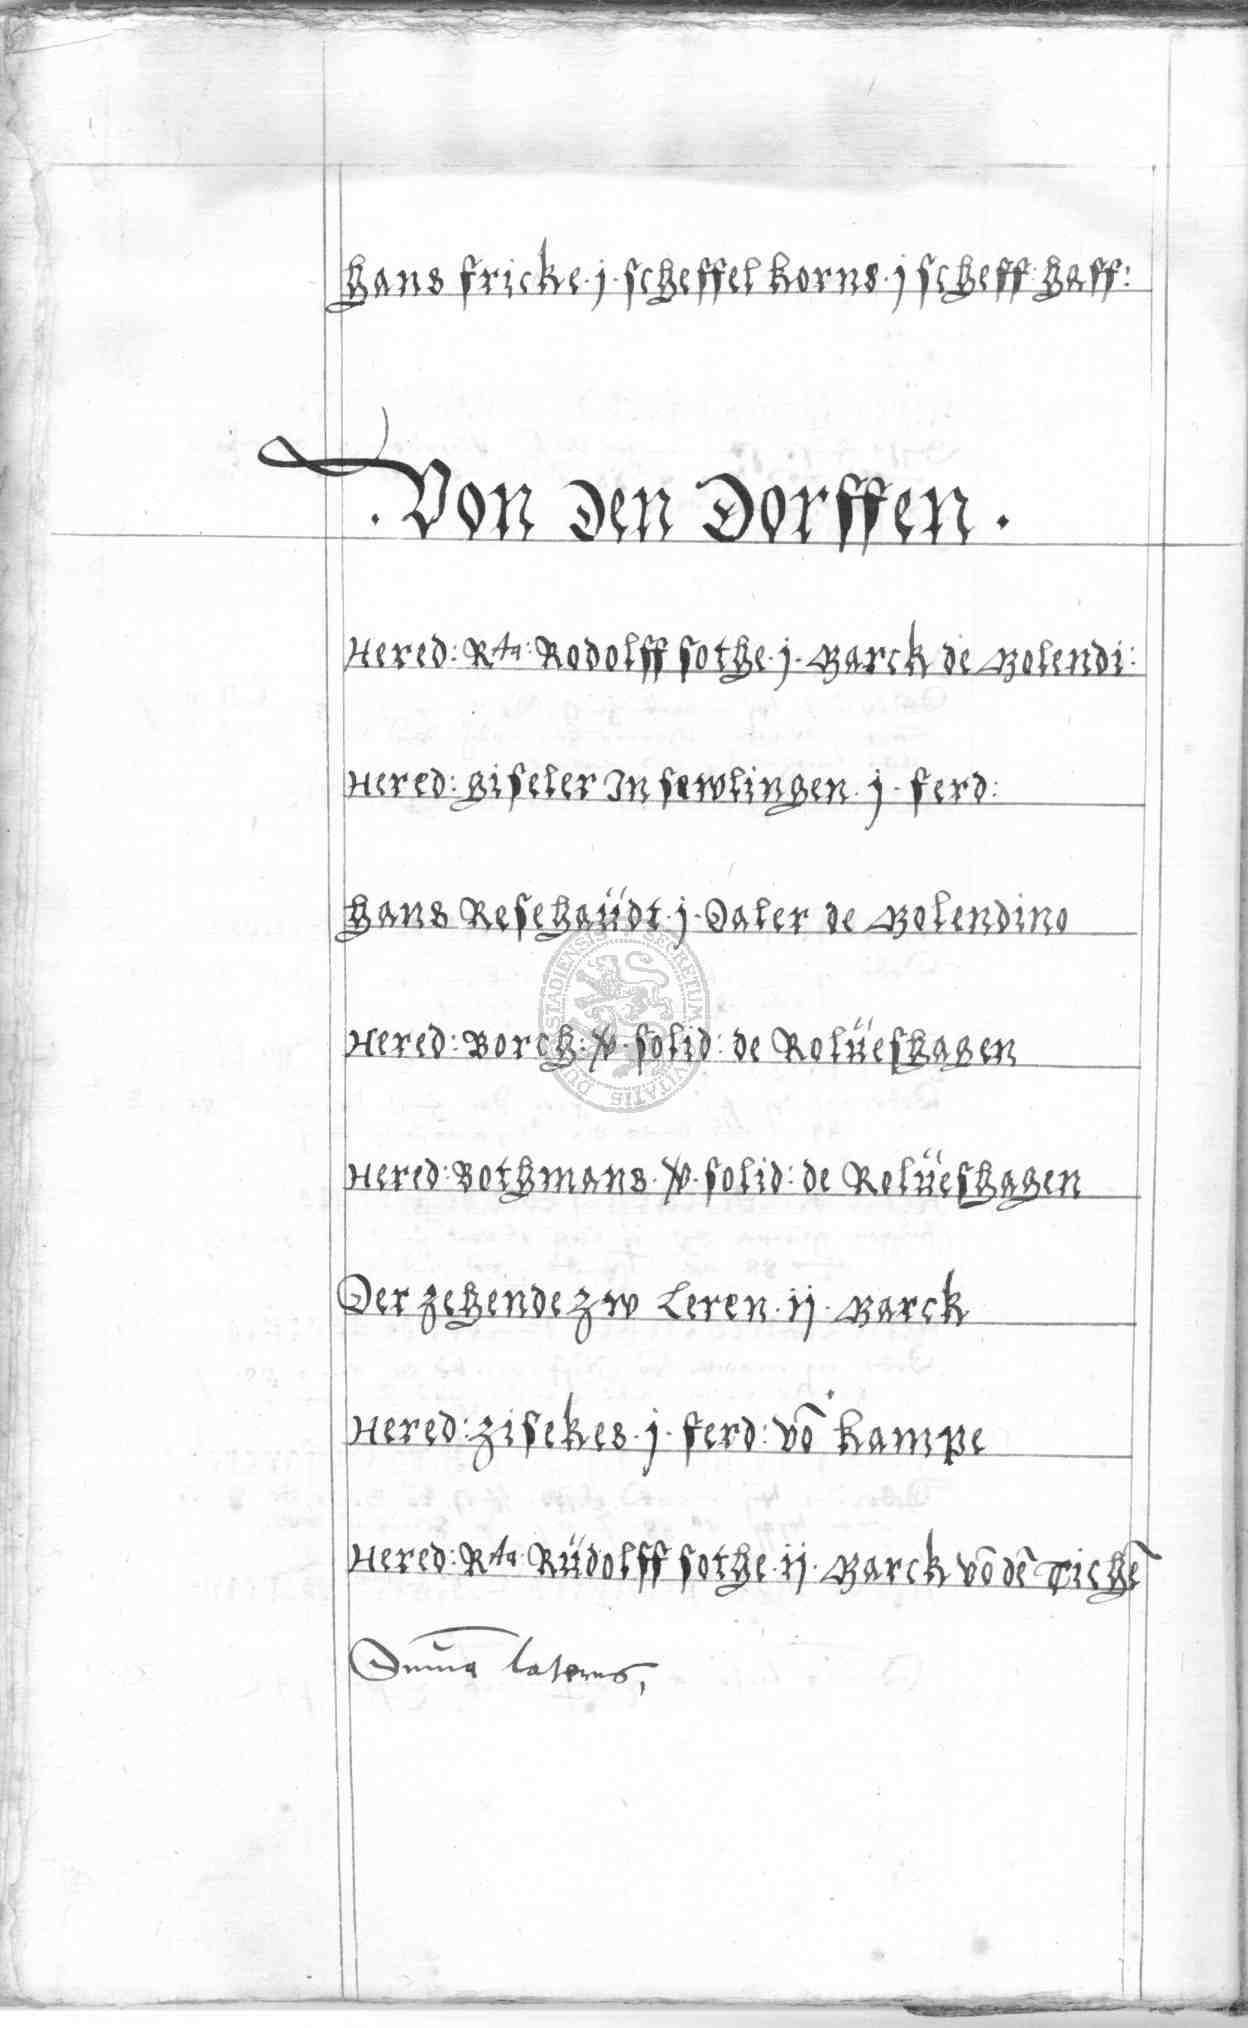 Hans Fricke · j · scheffel korns · j scheff: haff:
· Von den Dorffen ·
Hered: Rta: Rodolff sothe · j · Marck de Molendi:
Hered: giseler In sewlingen · j · ferd:
Hans Resehaüdt · j · Daler de Molendino
Hered: Borch: xv · solid: de Rolüeshagen
Hered: Bothmans · xv · solid: de Rolüeshagen
Der zehende zw Leren · ij · Marck
Hered: zisekes · j · ferd: vō kampe
Hered: Rta: Rüdolff sothe · ij · Marck vō dē Tichē
Suma lateris,